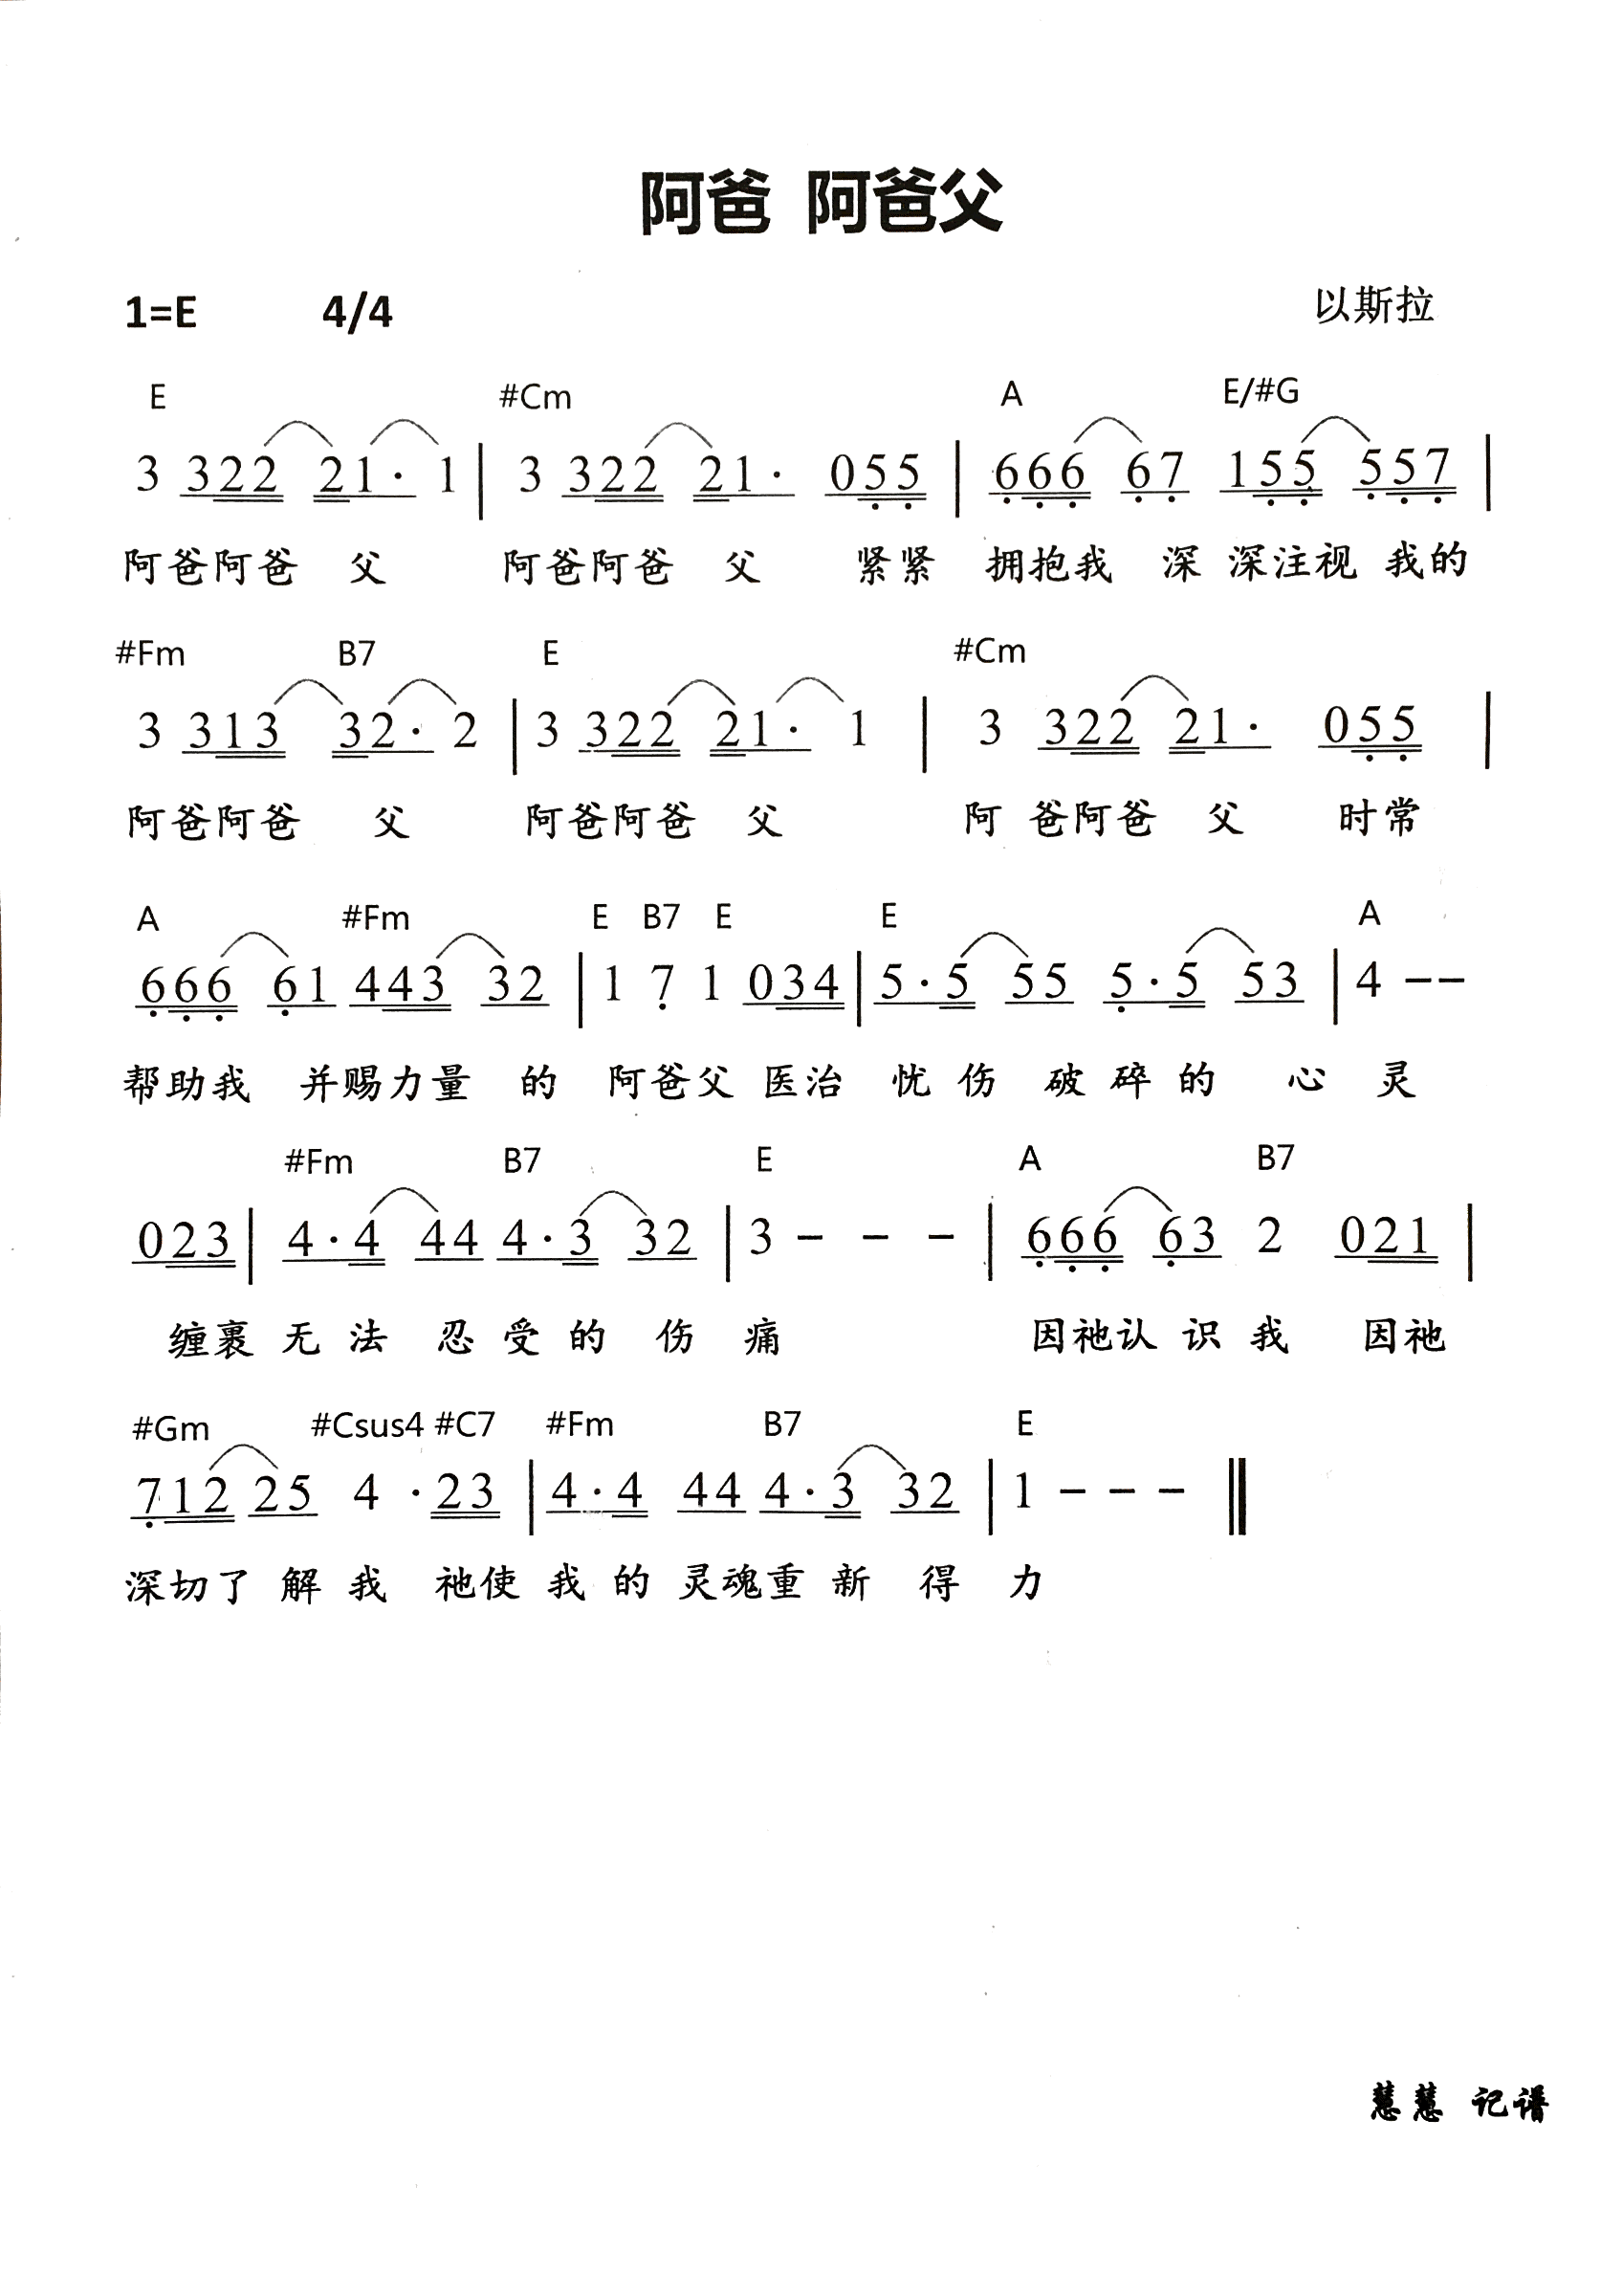 阿爸 阿爸父
1=E 4/4 以斯拉
E #Cm A E/#G
3 322 21· 1 | 3 322 21· 055 | 666 67 155 557 |
阿爸阿爸 父 阿爸阿爸 父 紧紧 拥抱我 深 深注视 我的
#Fm B7 E #Cm
3 313 32· 2 | 3 322 21· 1 | 3 322 21· 055 |
阿爸阿爸 父 阿爸阿爸 父 阿 爸阿爸 父 时常
A #Fm E B7 E E A
666 61 443 32 | 1 7 1 034 | 5·5 55 5·5 53 | 4 --
帮助我 并赐力量 的 阿爸父 医治 忧 伤 破 碎 的 心 灵
#Fm B7 E A B7
023 | 4·4 44 4·3 32 | 3 - - - | 666 63 2 021 |
缠裹 无 法 忍 受 的 伤 痛 因祂认 识 我 因祂
#Gm #Csus4 #C7 #Fm B7 E
712 25 4 ·23 | 4·4 44 4·3 32 | 1 - - - ‖
深切了 解 我 祂使 我 的 灵魂重 新 得 力
慧慧 记谱